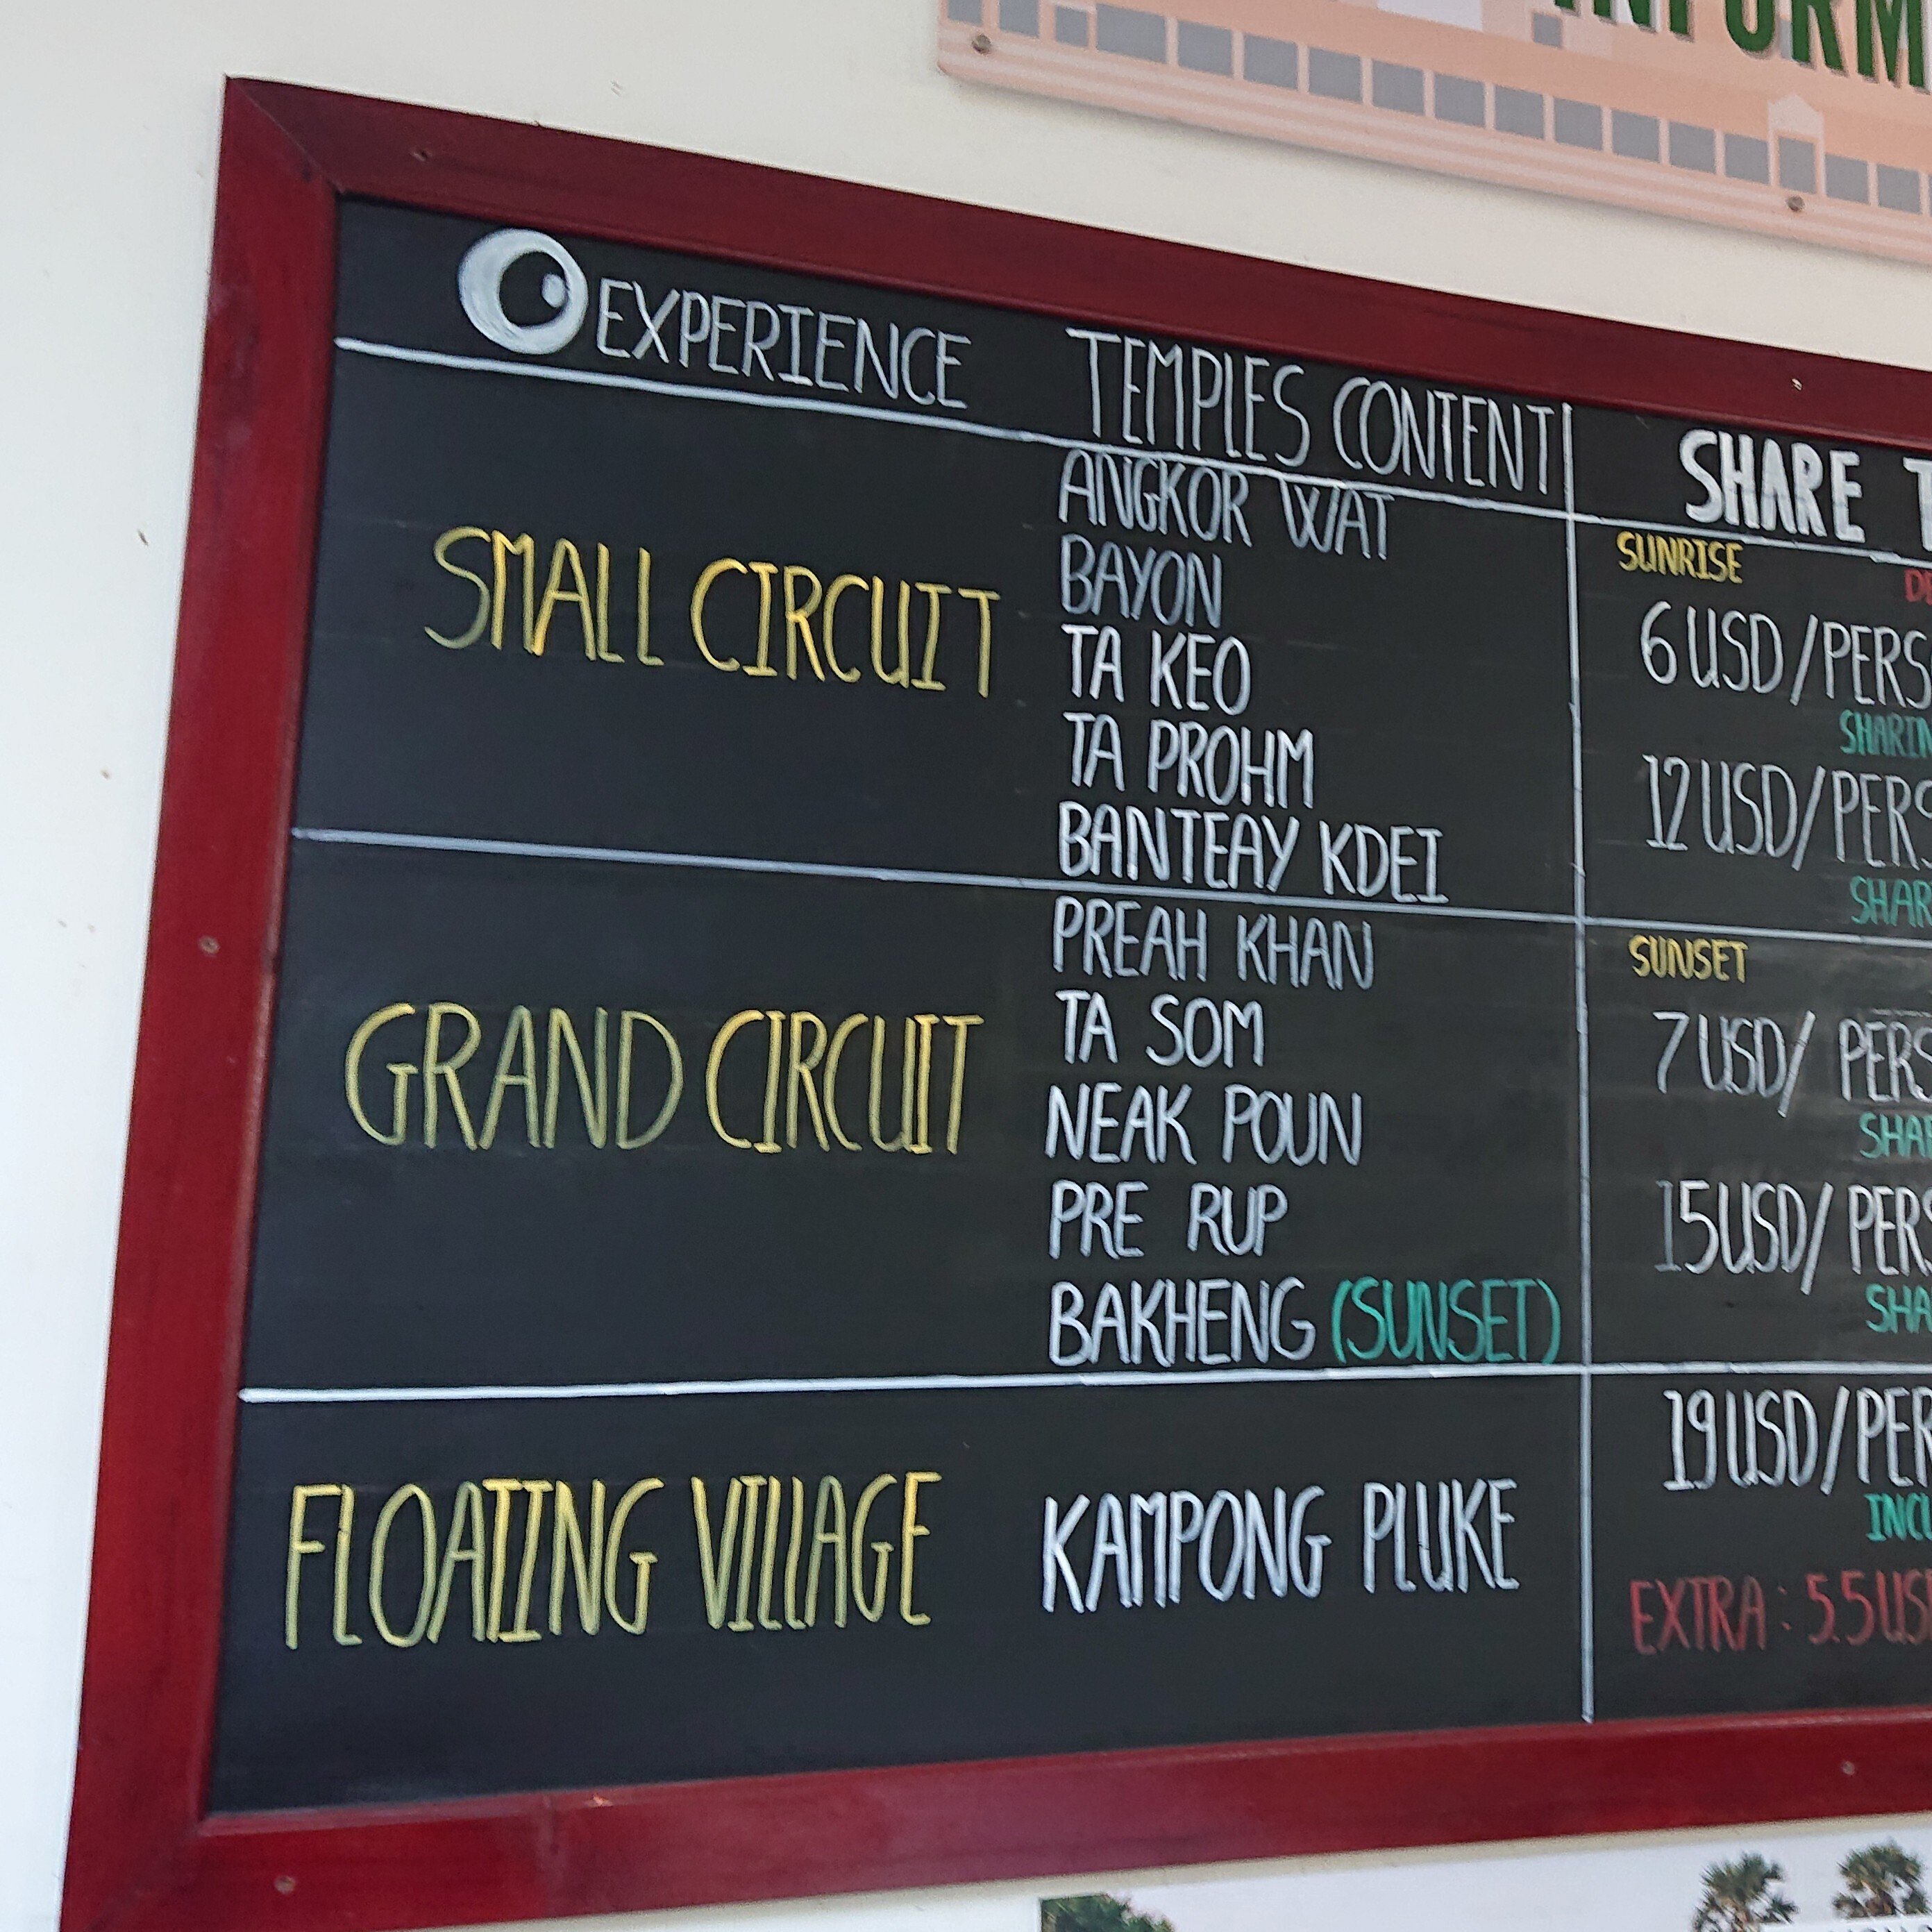 EXPERIENCE TEMPLES CONTENT SHARE
SMALL CIRCUIT
ANGKOR WAT
BAYON
TA KEO
TA PROHM
BANTEAY KDEI
SUNRISE
6 USD/PERS
12 USD/PERS
GRAND CIRCUIT
PREAH KHAN
TA SOM
NEAK POUN
PRE RUP
BAKHENG (SUNSET)
SUNSET
7 USD/ PERS
15 USD/ PERS
FLOATING VILLAGE
KAMPONG PLUKE
19 USD/PER
EXTRA: 5.5 USD